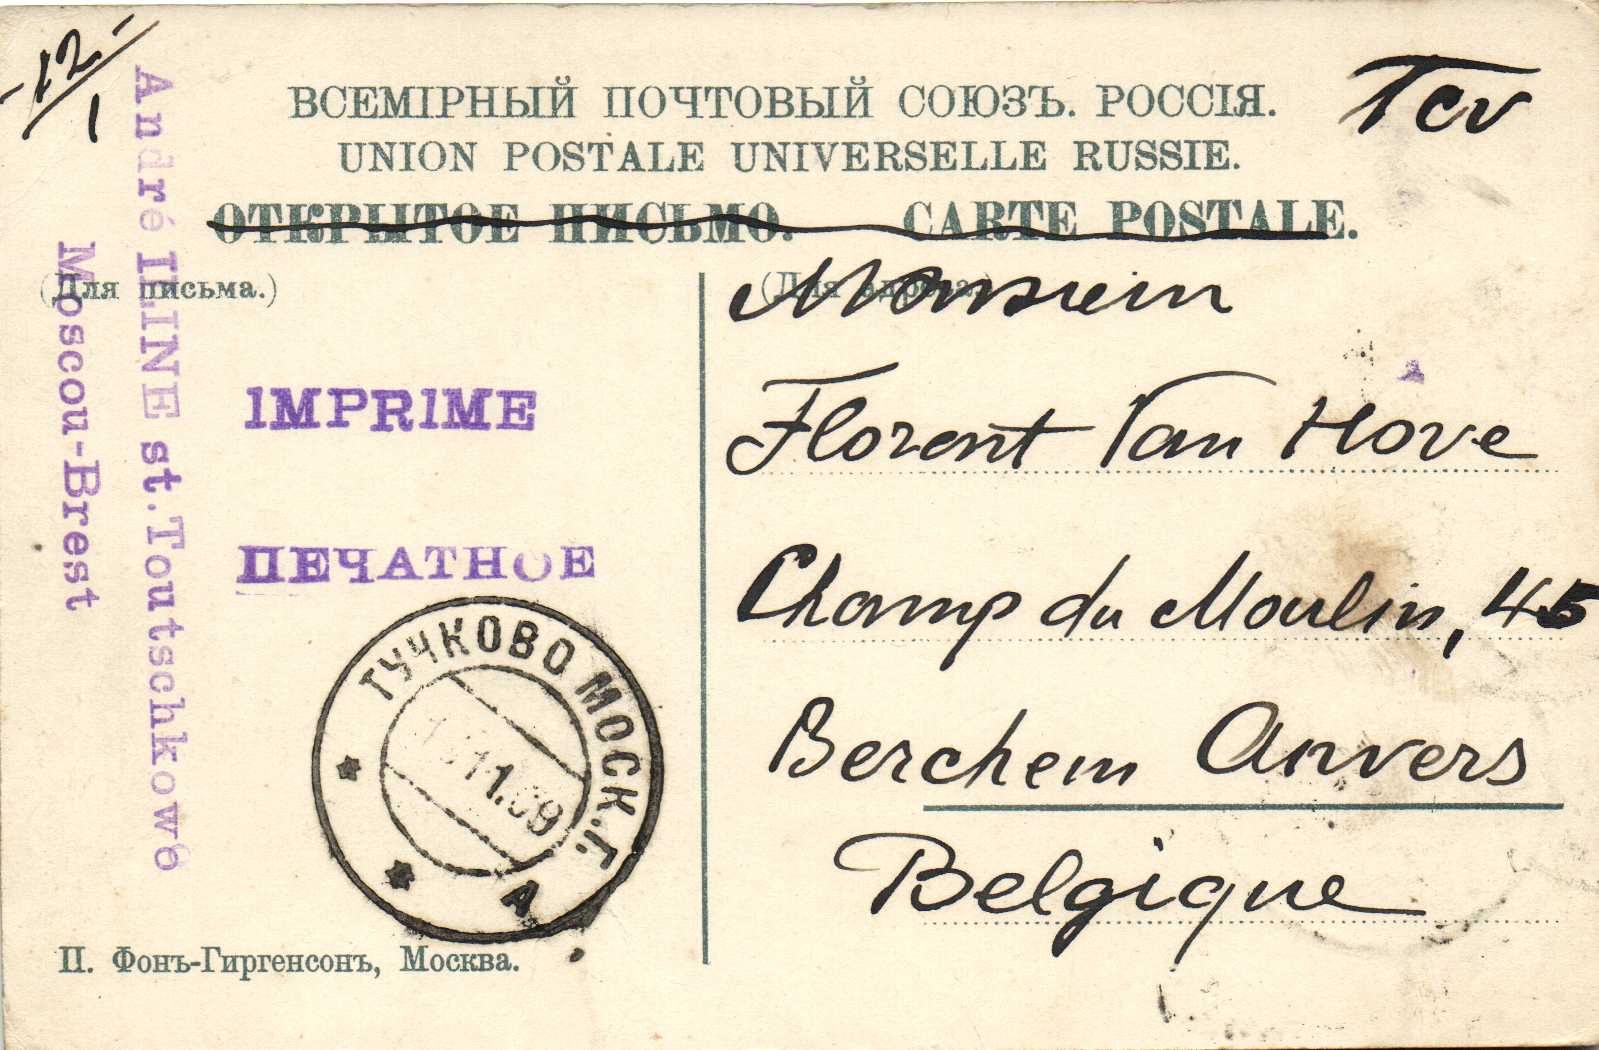 -12-/1
ВСЕМІРНЫЙ ПОЧТОВЫЙ СОЮЗЪ. РОССІЯ.
Tcv
UNION POSTALE UNIVERSELLE RUSSIE.
ОТКРЫТОЕ ПИСЬМО. CARTE POSTALE.
(Для письма.)
(Для адреса.)
André ILINE st.Toutschkowo
Moscou-Brest
IMPRIME
ПЕЧАТНОЕ
ТУЧКОВО МОСК.Г.
1.09
А
Monsieur
Florent Van Hove
Champ du Moulin, 45
Berchem Anvers
Belgique
П. Фонъ-Гиргенсонъ, Москва.